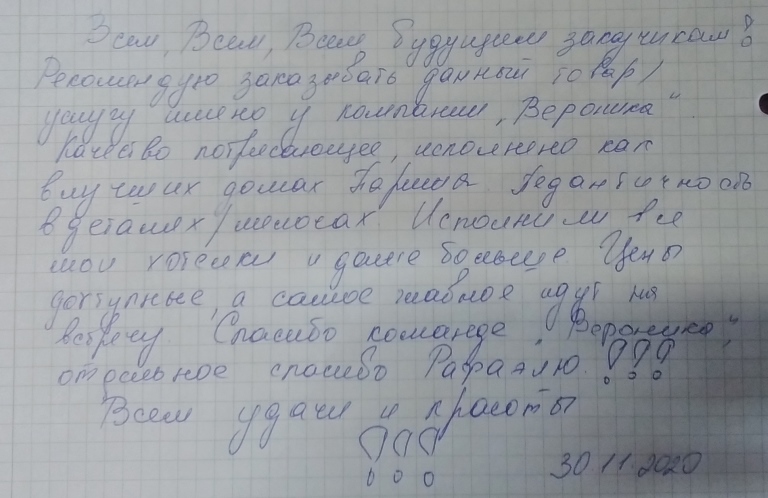 Всем, Всем, Всем будущим заказчикам!
Рекомендую заказывать данный товар/
услугу имено у компании „Вероника“.
Качество потрясающее, исполнено как
в лучших домах Парижа. Педантичность
в деталях/мелочах. Исполнили все
мои хотелки и даже больше. Цены
доступные, а самое главное идут на
встречу. Спасибо команде „Вероника“,
отдельное спасибо Рафаэлю!!!
Всем удачи и красоты
!!!
30.11.2020